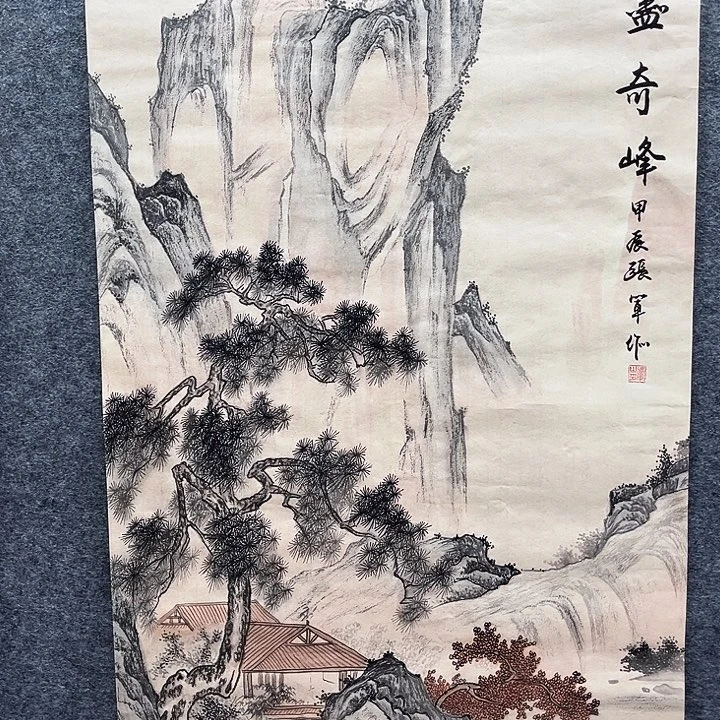 奇峰甲辰張軍作